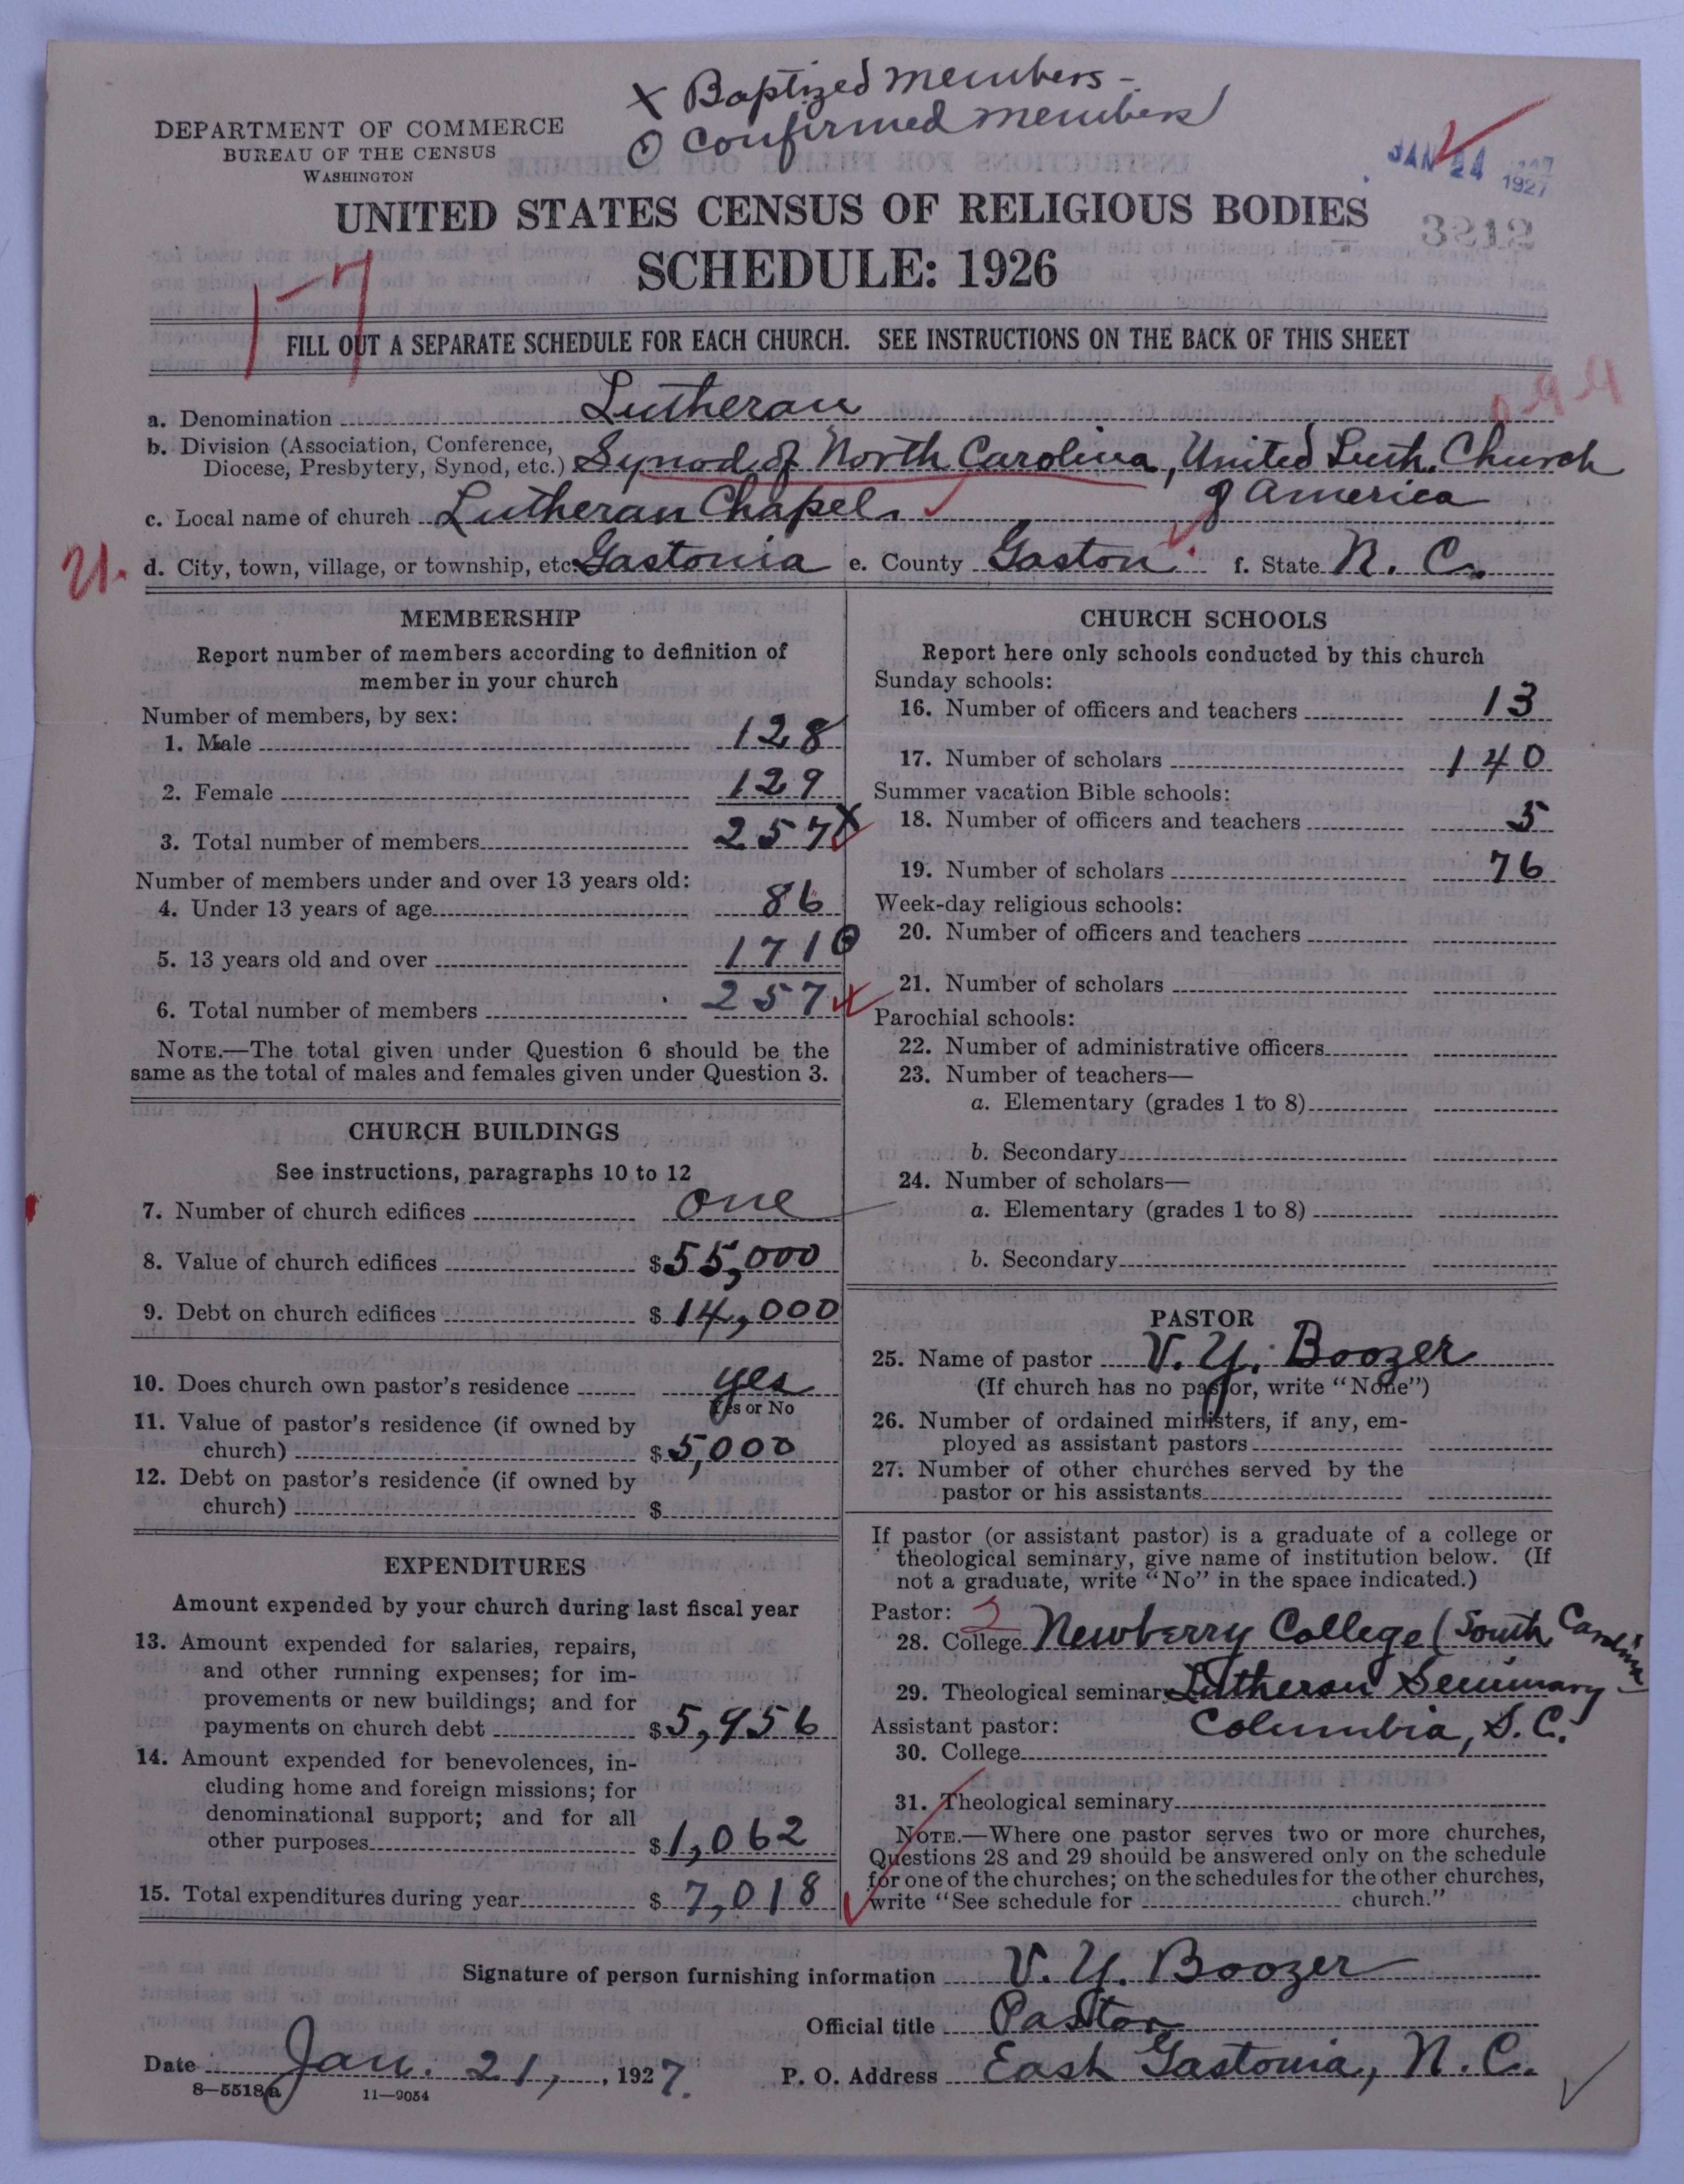 x Baptized members -
⊙ Confirmed members
DEPARTMENT OF COMMERCE
BUREAU OF THE CENSUS
WASHINGTON
JAN 24 1927
1927
UNITED STATES CENSUS OF RELIGIOUS BODIES
3212
SCHEDULE: 1926
1-7
FILL OUT A SEPARATE SCHEDULE FOR EACH CHURCH. SEE INSTRUCTIONS ON THE BACK OF THIS SHEET
a. Denomination Lutheran
b. Division (Association, Conference,
Diocese, Presbytery, Synod, etc.) Synod of North Carolina, United Luth. Church
of America
c. Local name of church Lutheran Chapel
d. City, town, village, or township, etc. Gastonia e. County Gaston f. State N. C.
MEMBERSHIP
Report number of members according to definition of
member in your church
Number of members, by sex:
1. Male 128
2. Female 129
3. Total number of members 257 x
Number of members under and over 13 years old:
4. Under 13 years of age 86
5. 13 years old and over 171 ⊙
6. Total number of members 257 x
NOTE.—The total given under Question 6 should be the
same as the total of males and females given under Question 3.
CHURCH BUILDINGS
See instructions, paragraphs 10 to 12
7. Number of church edifices one
8. Value of church edifices $55,000
9. Debt on church edifices $14,000
10. Does church own pastor's residence yes
Yes or No
11. Value of pastor's residence (if owned by
church) $5,000
12. Debt on pastor's residence (if owned by
church) $
EXPENDITURES
Amount expended by your church during last fiscal year
13. Amount expended for salaries, repairs,
and other running expenses; for im-
provements or new buildings; and for
payments on church debt $5,956
14. Amount expended for benevolences, in-
cluding home and foreign missions; for
denominational support; and for all
other purposes $1,062
15. Total expenditures during year $7,018
CHURCH SCHOOLS
Report here only schools conducted by this church
Sunday schools:
16. Number of officers and teachers 13
17. Number of scholars 140
Summer vacation Bible schools:
18. Number of officers and teachers 5
19. Number of scholars 76
Week-day religious schools:
20. Number of officers and teachers
21. Number of scholars
Parochial schools:
22. Number of administrative officers
23. Number of teachers—
a. Elementary (grades 1 to 8)
b. Secondary
24. Number of scholars—
a. Elementary (grades 1 to 8)
b. Secondary
PASTOR
25. Name of pastor V. Y. Boozer
(If church has no pastor, write "None")
26. Number of ordained ministers, if any, em-
ployed as assistant pastors
27. Number of other churches served by the
pastor or his assistants
If pastor (or assistant pastor) is a graduate of a college or
theological seminary, give name of institution below. (If
not a graduate, write "No" in the space indicated.)
Pastor: 2
28. College Newberry College (South Carolina)
29. Theological seminary Lutheran Seminary
Columbia, S.C.
Assistant pastor:
30. College
31. Theological seminary
NOTE.—Where one pastor serves two or more churches,
Questions 28 and 29 should be answered only on the schedule
for one of the churches; on the schedules for the other churches,
write "See schedule for church."
Signature of person furnishing information V. Y. Boozer
Official title Pastor
Date Jan. 21, 1927. P. O. Address East Gastonia, N. C.
8—5518a 11—9054